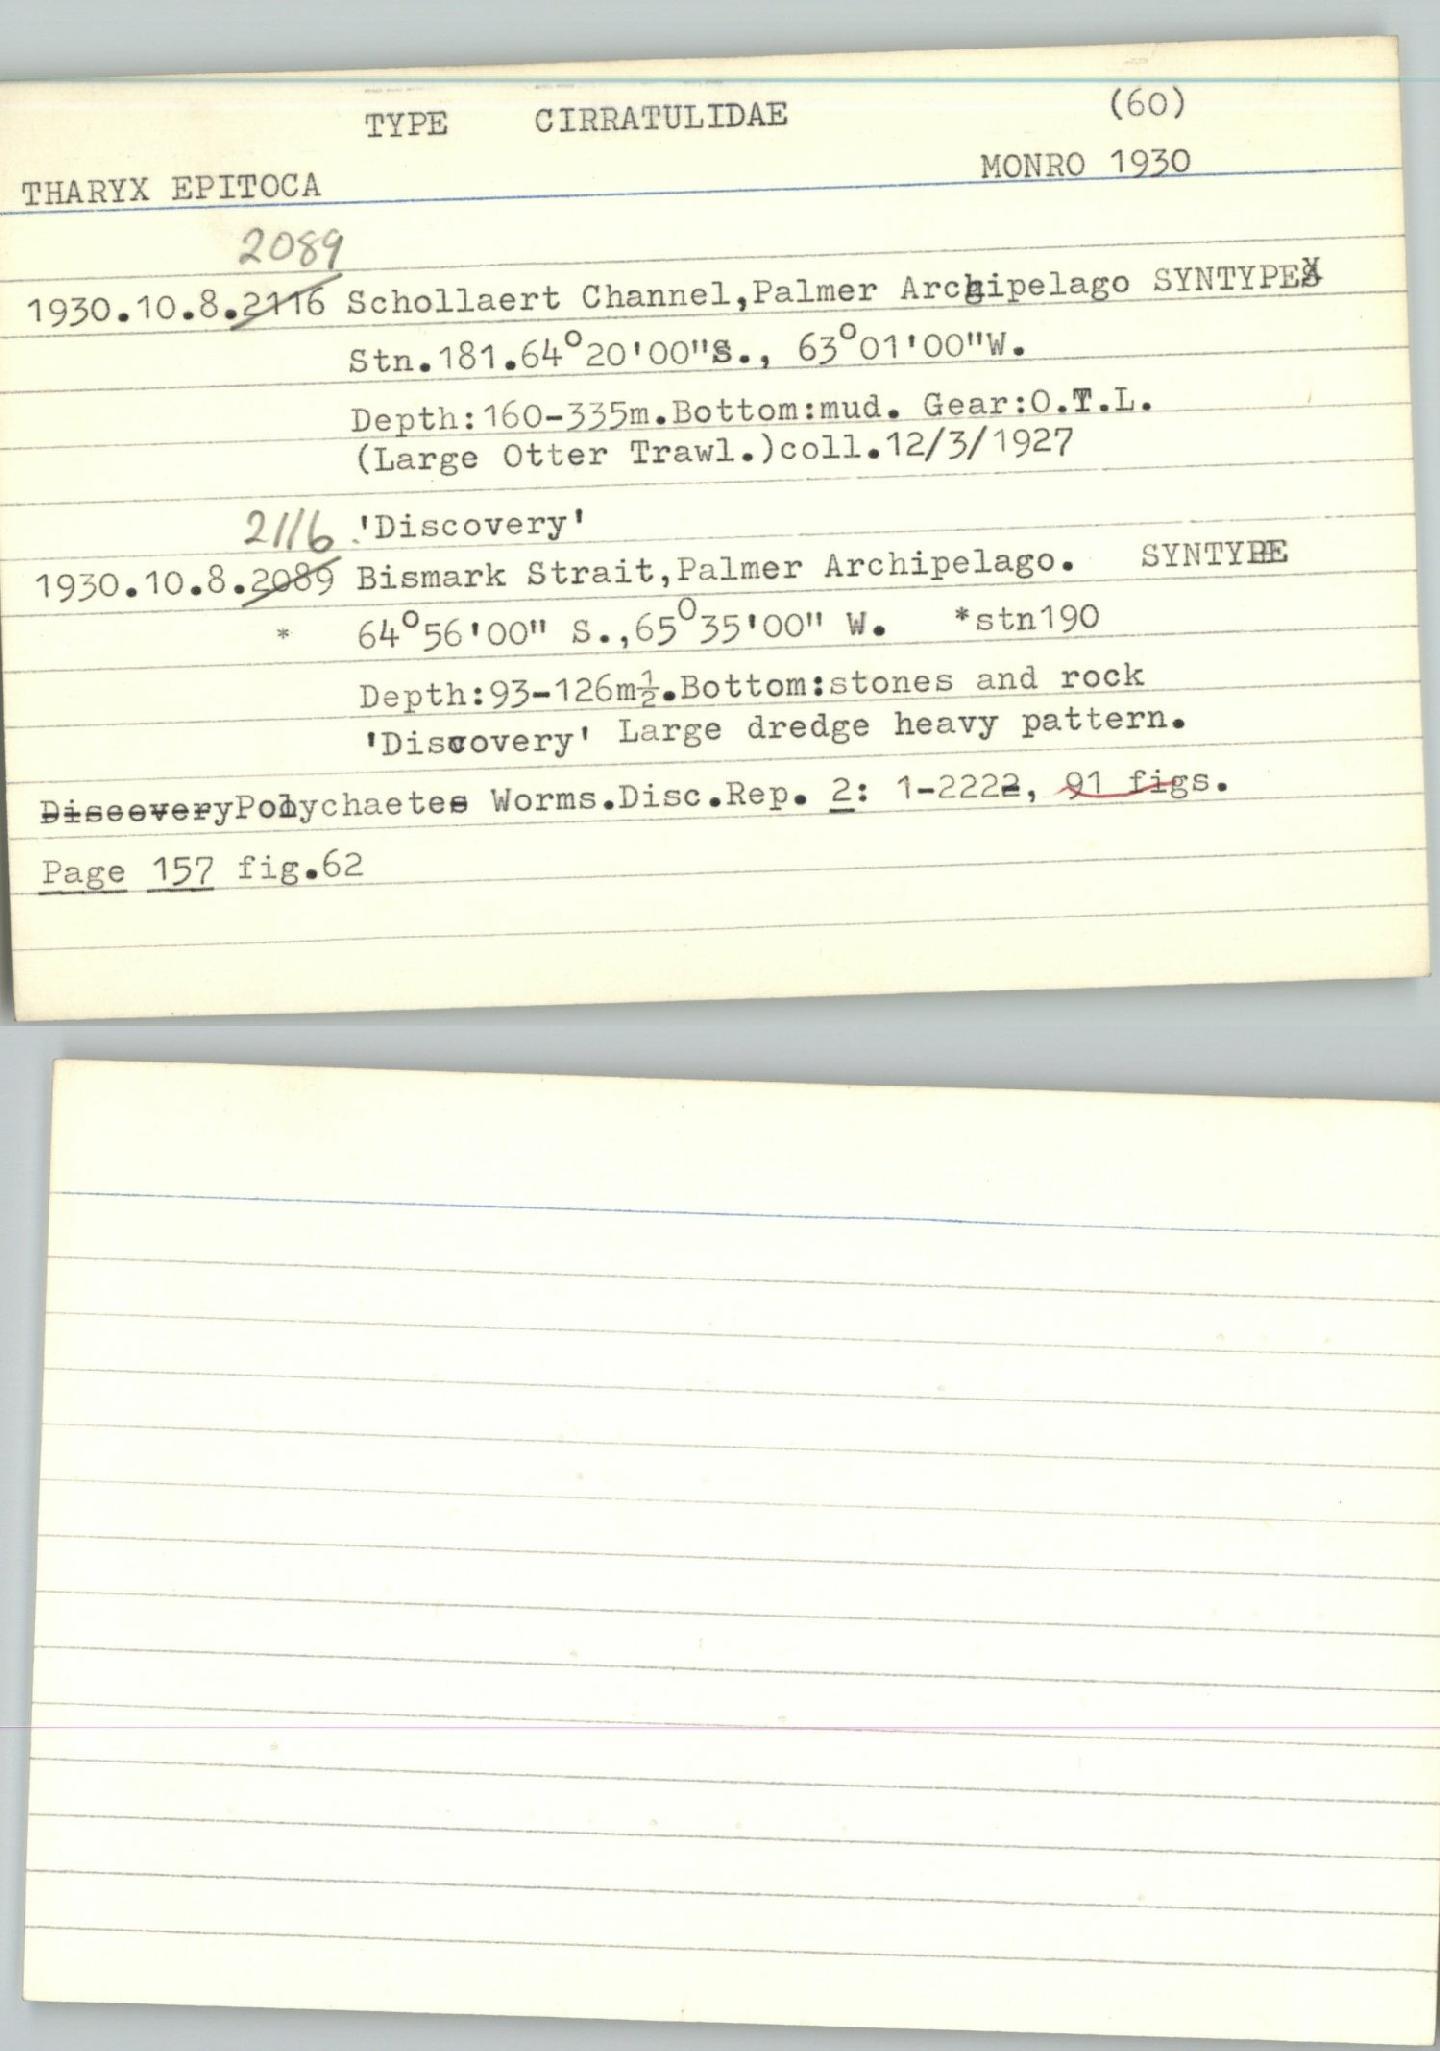 TYPE CIRRATULIDAE (60)
THARYX EPITOCA MONRO 1930
2089
1930.10.8.2116 Schollaert Channel,Palmer Archipelago SYNTYPES
Stn.181.64°20'00"S., 63°01'00"W.
Depth:160-335m.Bottom:mud. Gear:O.T.L.
(Large Otter Trawl.)coll.12/3/1927
2116 'Discovery'
1930.10.8.2089 Bismark Strait,Palmer Archipelago. SYNTYPE
* 64°56'00" S.,65°35'00" W. *stn190
Depth:93-126m½.Bottom:stones and rock
'Discovery' Large dredge heavy pattern.
DiscoveryPolychaetes Worms.Disc.Rep. 2: 1-2222, 91 figs.
Page 157 fig.62